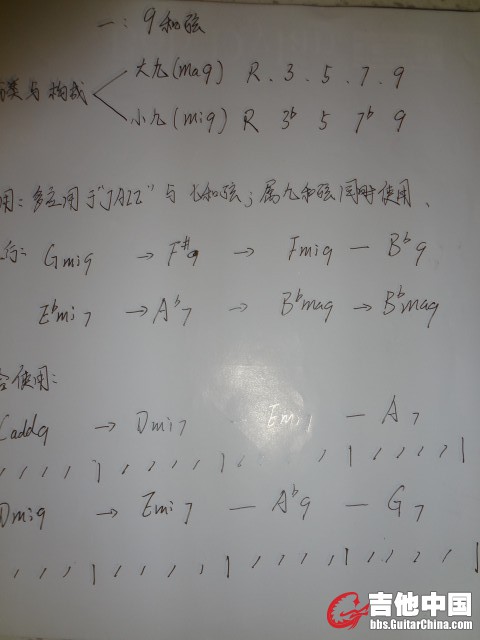 一：9和弦
类与构成
大九(ma9) R . 3 . 5 . 7 . 9
小九(mi9) R 3b 5 7b 9
用：多应用于"JAZZ"与 七和弦；属九和弦同时使用、
行： Gmi9 → F#9 → Fmi9 — Bb9
Ebmi7 → Ab7 → Bbma9 → Bbma9
合使用：
Cadd9 → Dmi7 Emi7 — A7
Dmi9 → Emi7 — Ab9 — G7
吉他中国
bbs.GuitarChina.com